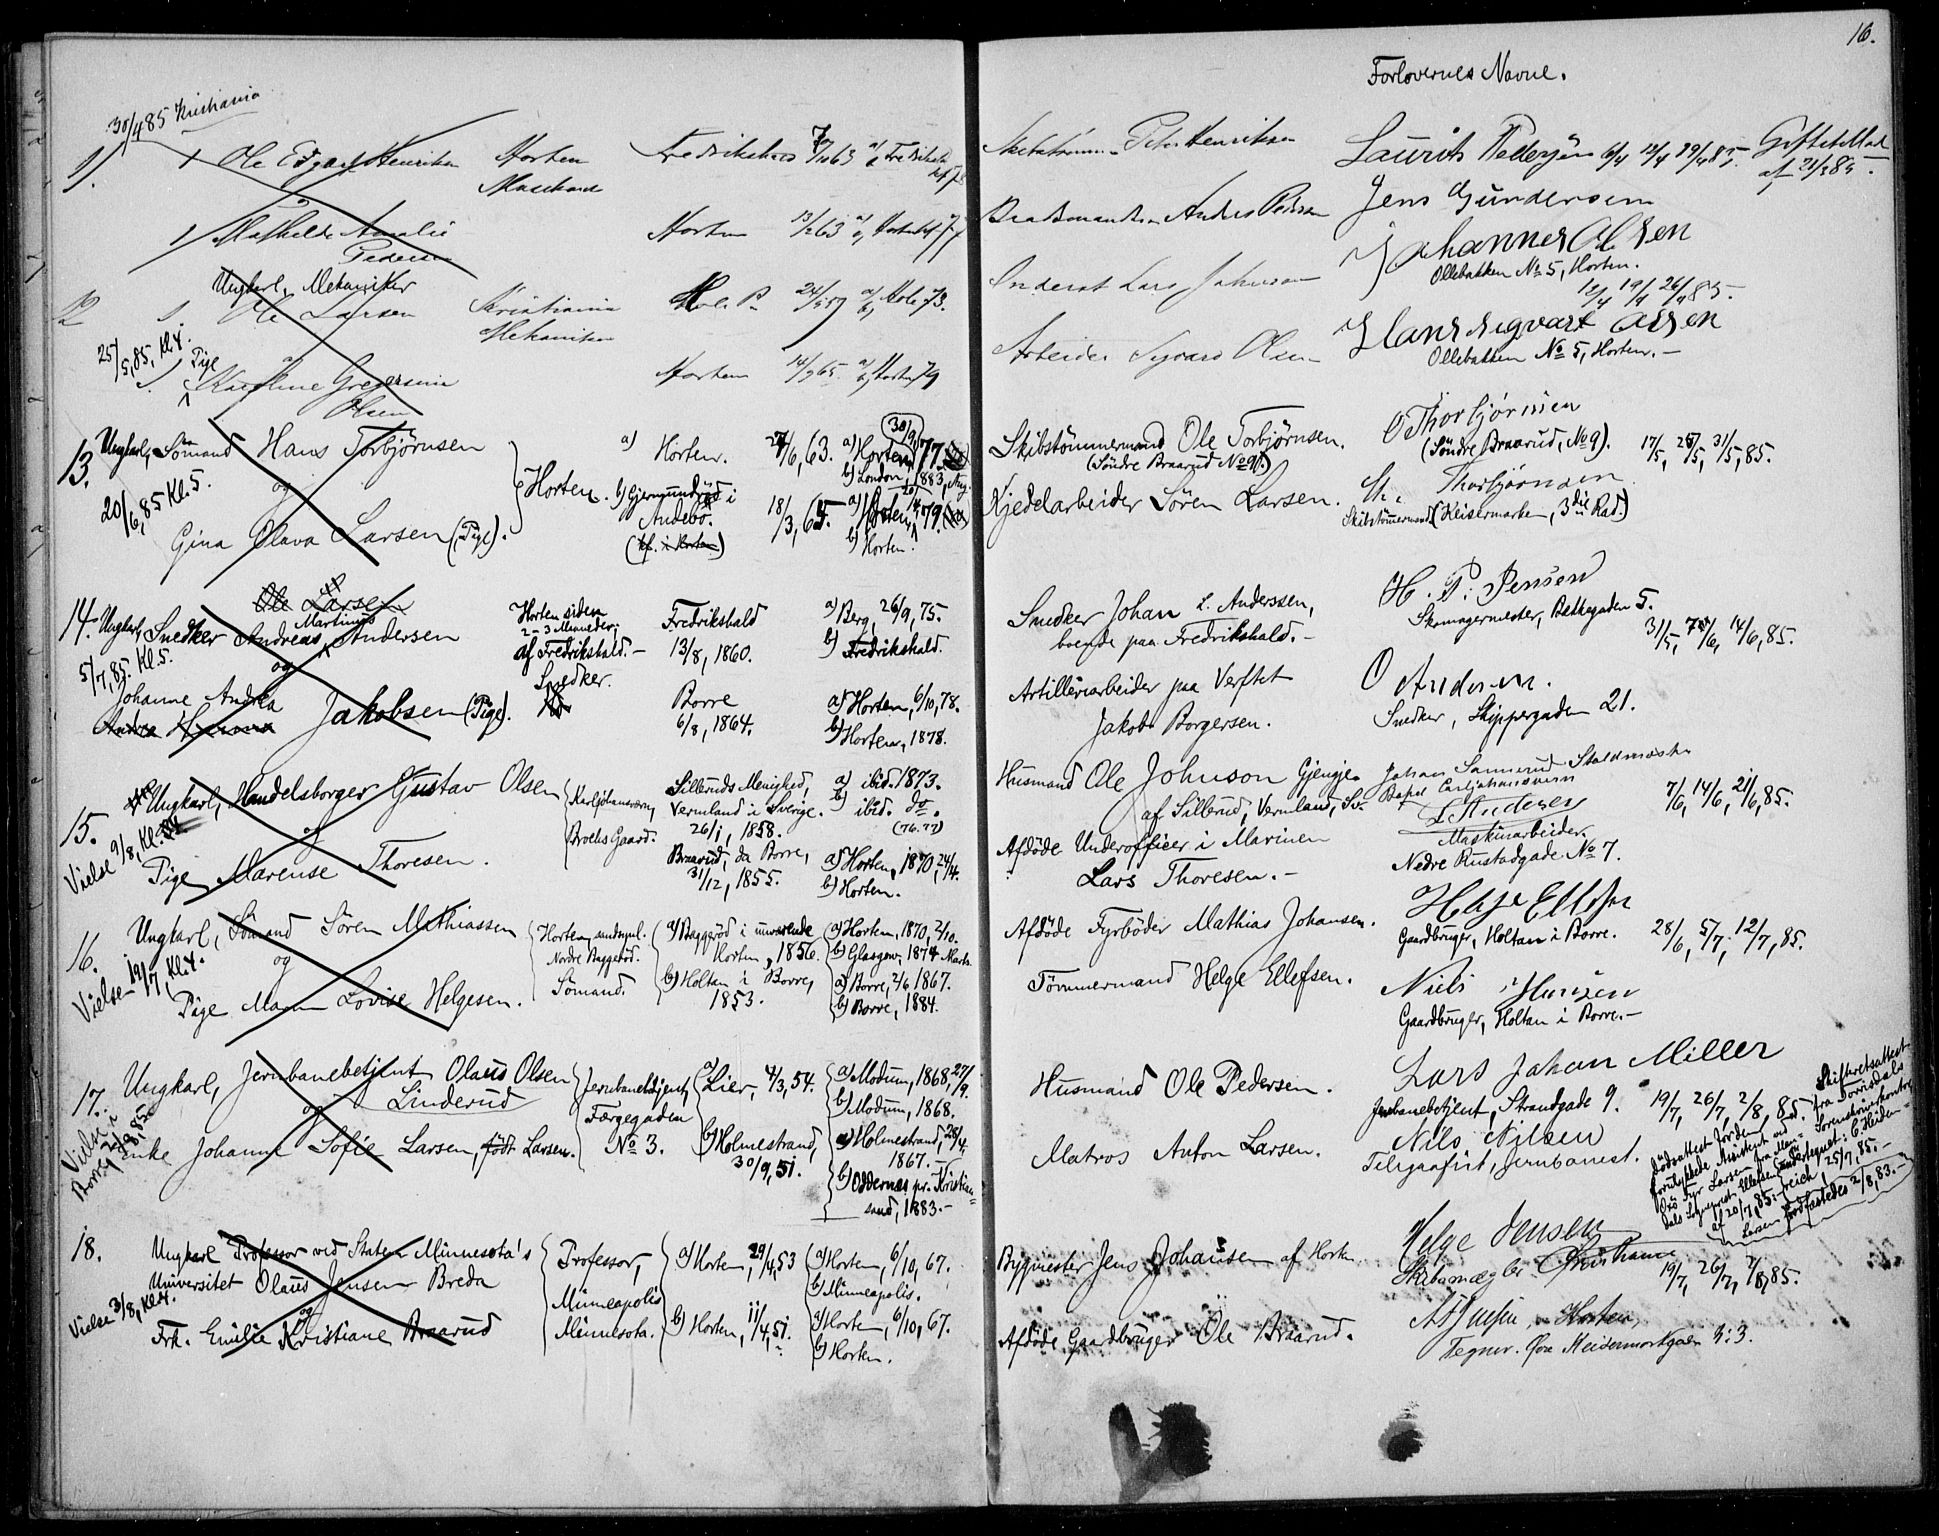 16.
Forlovernes Navne.
30/4 85 Kristiania
11. 1 Ole Edvard Henriksen Horten Fredrikshald 63
Peter Henriksen
Laurits Pedersen 12/4 19/4 85. Giftet
af 21/3 85.
1 Mathilde Amalie Horten 13/2 63
Pedersen
Anders Pedersen
Jens Gundersen
Johannes Olsen
Ollebakken No 5, Horten.
12/4 19/4 26/4 85.
12 Ungkarl, Mekaniker
1 Ole Larsen Kristiania Hole P. 24/5 57 a/ Hole 73.
Mekaniker
Inderst Lars Johnsen
25/5, 85, Kl. 4.
Pige
1. Karoline Gregersine Horten 14/9 65 Horten 79
Olsen
Arbeider Sigvard Olsen
Hans Sigvart Olsen
Ollebakken No 5, Horten. –
13. Ungkarl, Sømand Hans Torbjørnsen
20/6, 85 Kl. 5.
og
Gina Olava Larsen (Pige).
Horten.
a) Horten. 27/6, 63. a) Horten 30/9, 77.
b) London, 1883, Aug.
b) Gjermundrød i
Andebo. 18/3, 64. a) Horten, 79.
(kf. i Horten) b) Horten.
Skibstømmermand Ole Torbjørnsen.
(Søndre Braarud No 9.)
O Thorbjørnsen
(Søndre Braarud, No 9). 17/5, 25/5, 31/5, 85.
Kjedelarbeider Søren Larsen.
Thorbjørnsen
Skibstømmermand (Keisermarken, 3die Rad.)
14. Ole Larsen
Martinus
Ungkarl, Snedker Andreas Andersen
5/7, 85. Kl. 5.
og
Johanne Andrea
Jakobsen (Pige).
Horten siden
2-3 Maaneder;
af Fredrikshald. –
Snedker.
Fredrikshald
13/8, 1860.
Borre
6/8, 1864.
a) Berg, 26/9, 75.
b) Fredrikshald.
a) Horten, 6/10, 78.
b) Horten, 1878.
Snedker Johan L. Anderssen,
boende paa Fredrikshald. –
Artilleriarbeider paa Verftet
Jakob Borgersen.
H. P. Jensen
Skomagermester, Bekkegaden 5.
31/5, 7/6, 14/6, 85.
O Andersen.
Snedker, Skippergaden 21.
15. Ungkarl, Handelsborger Gustav Olsen
Vielse 9/8, Kl.
og
Pige Marense Thoresen.
Karljohansværn,
Brochs Gaard.
Silleruds Menighed,
Vermland i Sverige.
26/1, 1858.
Braarud, da Borre,
31/12, 1855.
a) ibid. 1873.
b) ibid. do.
(76. 77)
a) Horten, 1870, 24/4.
b) Horten.
Husmand Ole Johnson Gjengjen
af Sillerud, Vermland, Sv.
Afdøde Underofficer i Marinen
Lars Thoresen. –
Johan Sannerud Staldmester
Carljohansvern
L Andersen
Maskinarbeider.
Nedre Rustadgade No 7.
7/6, 14/6, 21/6, 85.
16. Ungkarl, Sømand Søren Mathiassen
Vielse 19/7, Kl. 4.
og
Pige Maren Lovise Helgesen.
Horten,
Nordre Baggerød.
Sømand.
a) Baggerød i nuværende
Horten, 1856.
b) Holtan i Borre,
1853.
a) Horten, 1870, 2/10.
b) Glasgow, 1874 Marts
a) Borre, 2/6 1867.
b) Borre, 1884.
Afdøde Fyrbøder Mathias Johansen.
Tømmermand Helge Ellefsen.
Helje Ellefsen
Gaardbruger, Holtan i Borre. 28/6, 5/7, 12/7, 85.
Niels Hansen
Gaardbruger, Holtan i Borre. –
17. Ungkarl, Jernbanebetjent Olaus Olsen
og Linderud
Vielse i
Borre 25/8, 85.
Enke Johanne Sofie Larsen, født Larsen.
Jernbanebetjent,
Færgegaden
No 3.
a) Lier, 4/3, 54.
b) Holmestrand,
30/9, 51.
a) Modum, 1868, 27/9.
b) Modum, 1868.
a) Holmestrand, 28/4,
1867. –
b) Oddernes pr. Kristian-
sand, 1883. –
Husmand Ole Pedersen.
Matros Anton Larsen.
Lars Johan Miller
Jernbanebetjent, Strandgade 9. 19/7, 26/7, 2/8, 85.
Nils Nilsen
Telegrafist, Jernbanest.
Skifteretsattest
fra Torrisdals
Sorenskriverkontor
Dødsattest for den
forulykkede Assistent ved
Oxø Fyr Larsen fra Man-
dals Sognepræst Ellefsen
af 20/7, 85.
25/7, 85. –
Larsen jordfæstedes 2/8, 83. –
18. Ungkarl Professor ved Staten Minnesota's
Universitet Olaus Jensen Breda
Vielse 3/8, Kl. 4.
og
Frk. Emilie Kristiane Braarud
Professor,
Minneapolis
Minnesota.
a) Horten, 29/4, 53
b) Horten, 11/4, 51.
a) Horten, 6/10, 67.
b) Minneapolis.
a) Horten, 6/10, 67.
b) Horten.
Bygmester Jens Johansen af Horten
Afdøde Gaardbruger Ole Braarud.
Helge Jensen
Skibsmægler Kristiania
19/7, 26/7, 2/8, 85.
Horten,
Tegner.